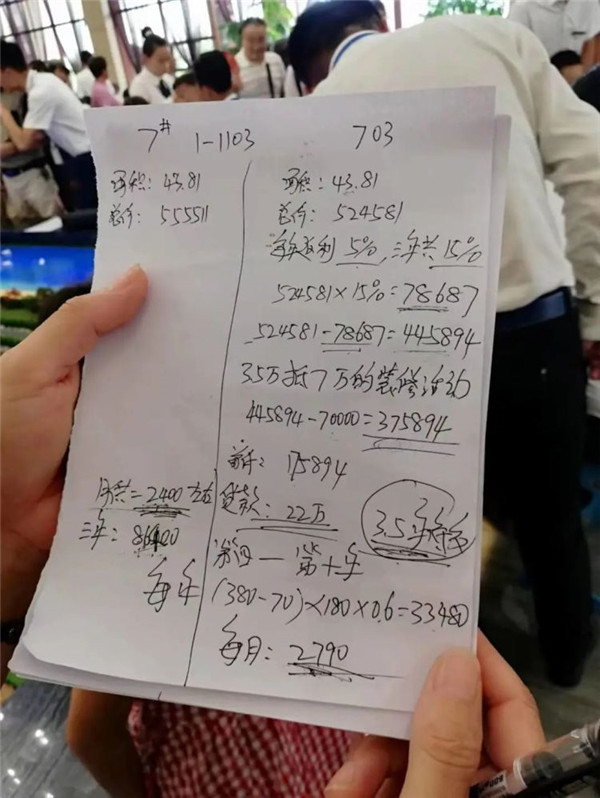 7# 1-1103
面积: 43.81
总价: 555511
月供=2400左右
三年: 86400
每年
703
面积: 43.81
总价: 524581
每年返利5%, 三年共15%
524581×15%=78687
524581-78687=445894
3.5万抵7万的装修活动
445894-70000=375894
首付: 175894
贷款: 22万
3.5
第四一第十年
(380-70)×180×0.6=33480
每月: 2790